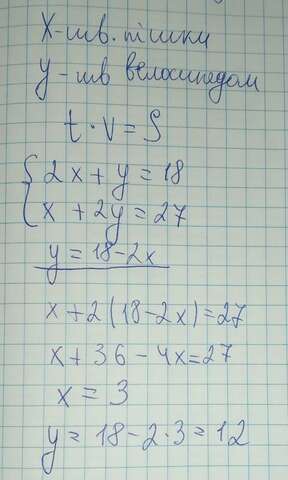 x - шв. пішки
y - шв велосипедом
t · v = S
{ 2x + y = 18
x + 2y = 27
y = 18 - 2x
x + 2(18 - 2x) = 27
x + 36 - 4x = 27
x = 3
y = 18 - 2 · 3 = 12